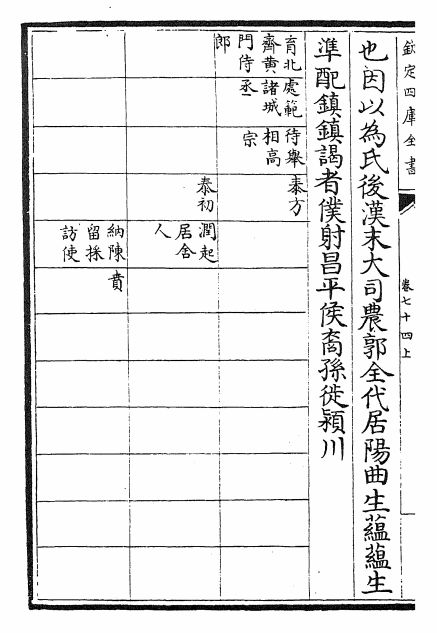 欽定四庫全書
卷七十四上
也因以為氏後漢末大司農郭全代居陽曲生蘊蘊生
準配鎮鎮謁者僕射昌平侯裔孫徙潁川
育北
齊黄
門侍
郎
處範
諸城
丞
待舉
相高
宗
泰方
泰初
潤起
居舍
人
納陳
留採
訪使
賁